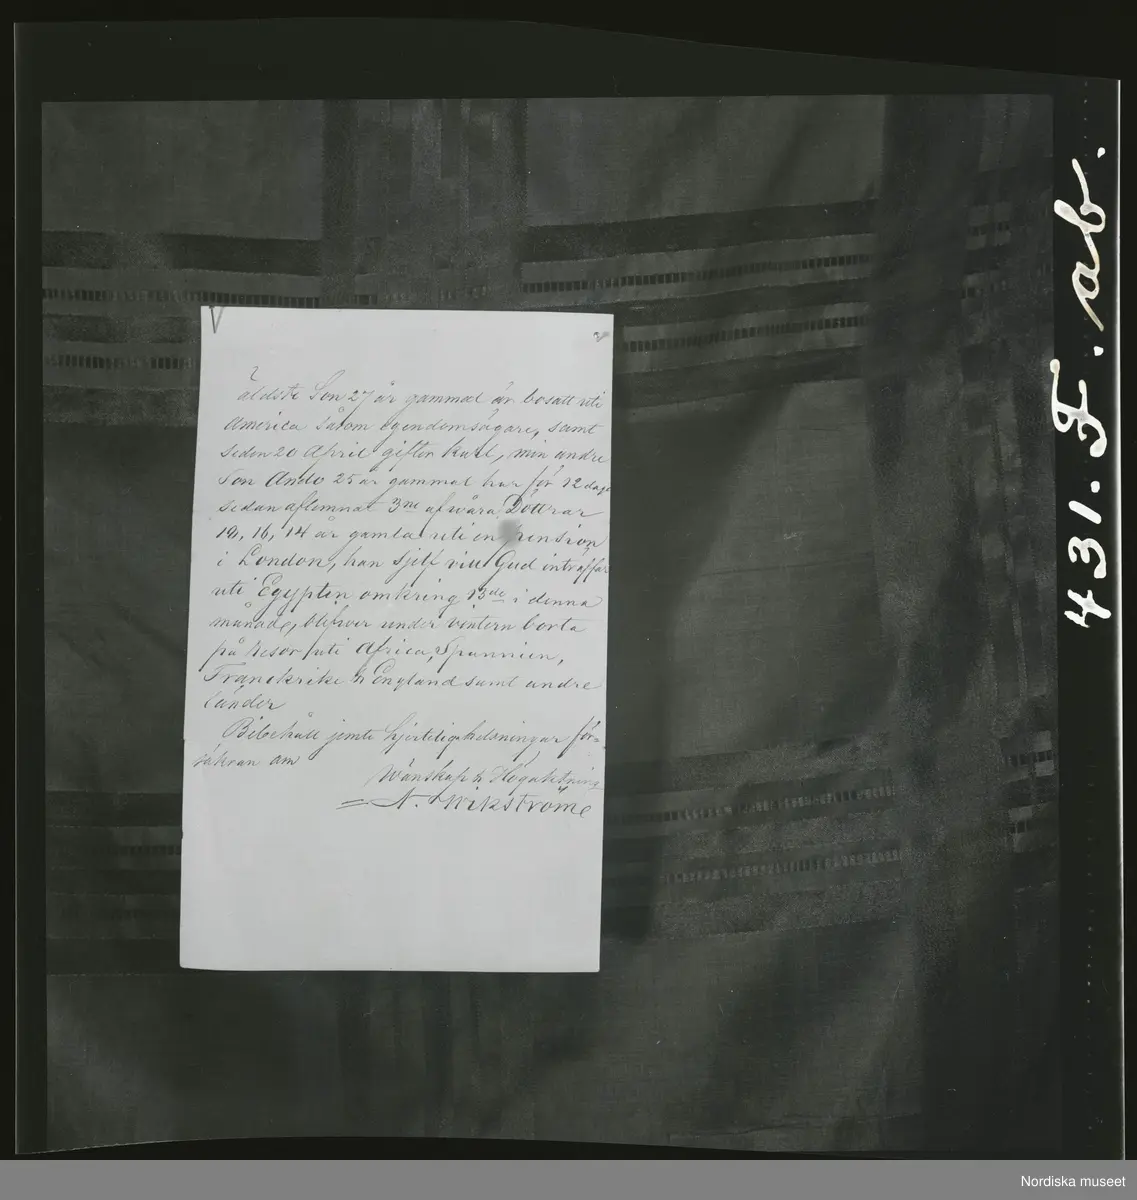 2
äldste Son 27 år gammal är bosatt uti
America såsom egendomsägare, samt
seden 20 April giften karl, min andre
Son Ando 25 år gammal har för 12 dagar
sedan aflemnat 3ne af våra Döttrar
19, 16, 14 år gamla uti en pension
i London, han sjelf vill Gud inträffar
uti Egypten omkring 13de i denna
månade, blifver under vintern borta
på resor uti Africa, Spannien,
Franckrike & England samt andre
länder
Bibehåll jemte hjerteliga helsningar för=
säkran om
Wänskap & Högaktning
N. Wikström
431. F. ab.
Nordiska museet